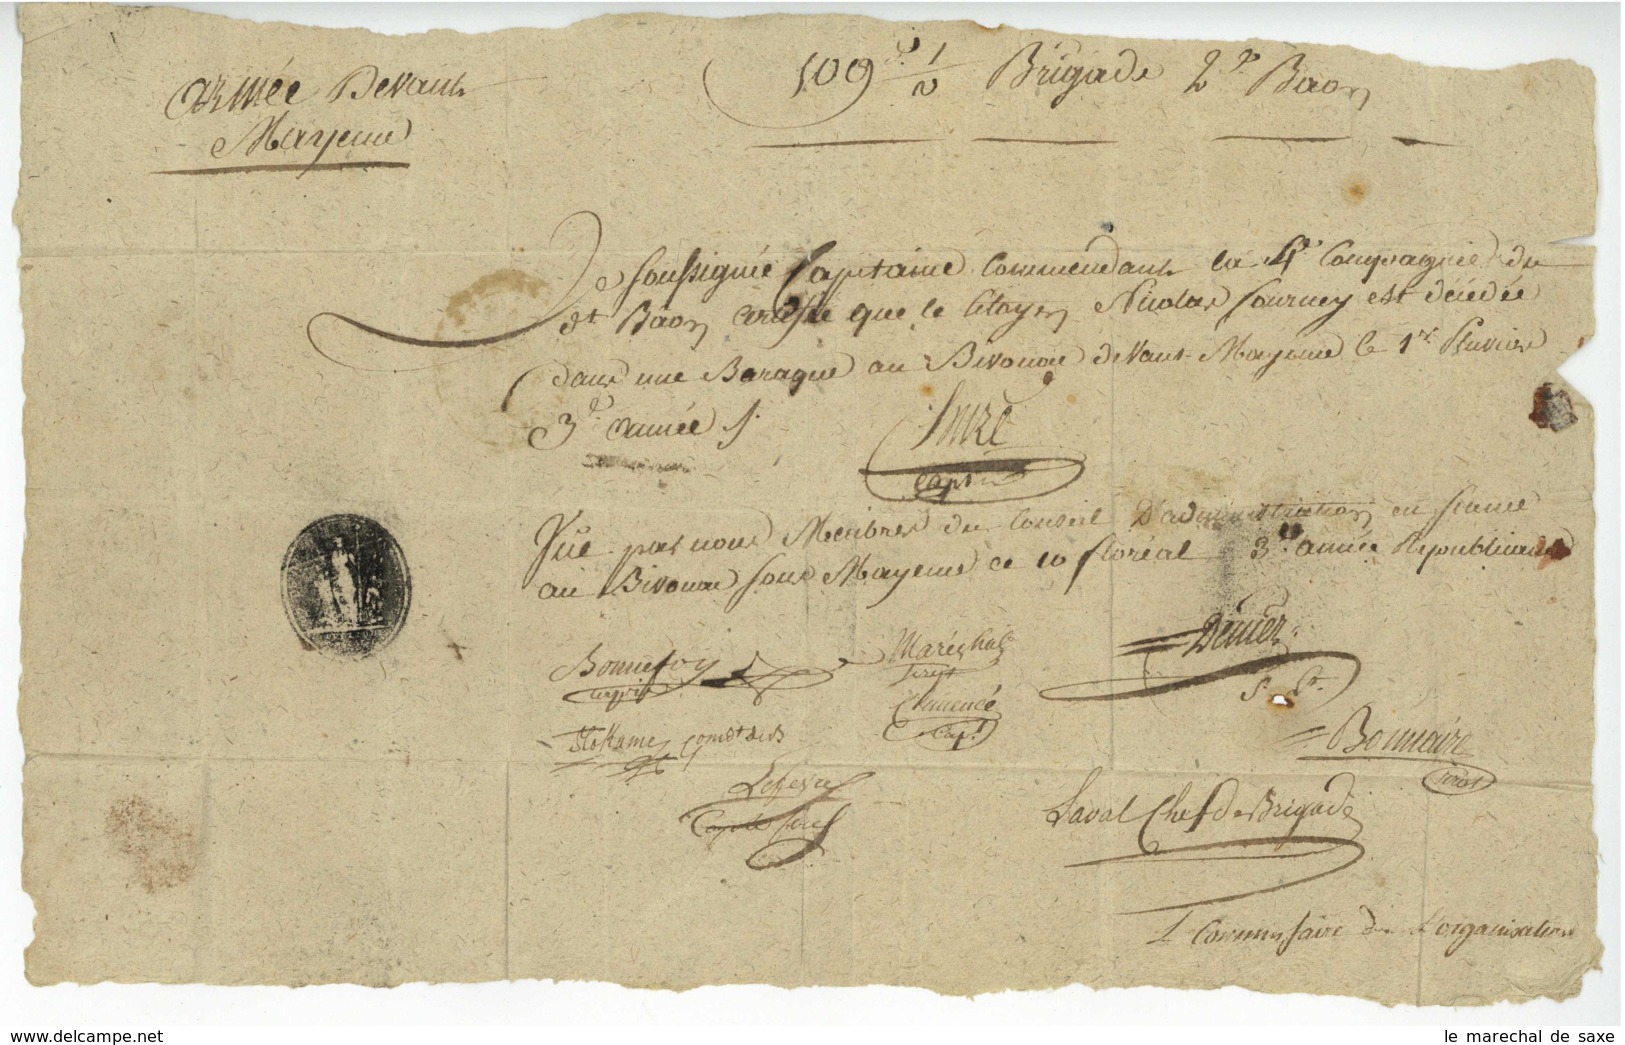 Armée Devant
Mayence
109e 1/2 Brigade 2e Baon
Je soussignée Capitaine Commendant la 4e Compagnie du
dt Baon certifie que le Citoyen Nicolas Fourney est décédée
dans une Baraque au Bivouac devant Mayence le 1er Pluviose
3e année
Capt
Vue par nous Membres du Conseil D'administration en séance
au Bivouac sous Mayence ce 10 floréal 3e année Republicaine
Bonnefoy
Maréchal
Sergt
Denier
S. Lt.
Clémencé
Capt
Bonnaire
Lefevre
Laval Chef de Brigade
Commissaire de L'organisation
www.delcampe.net
le marechal de saxe